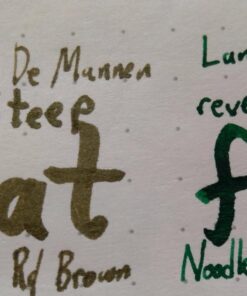 De Mannen
teep
at
Rd Brown
Lun
reve
f
Noodle